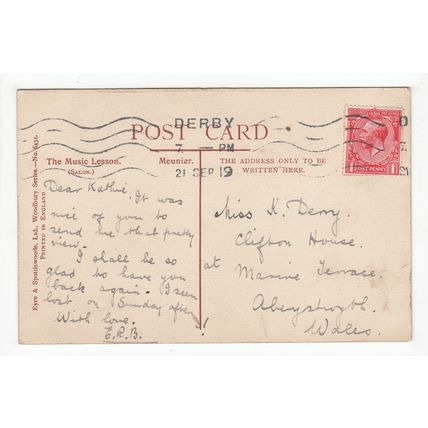 DERBY
7. — PM
21 SEP 19
POST CARD
The Music Lesson.
(SALON.)
Meunier.
THE ADDRESS ONLY TO BE
WRITTEN HERE.
Eyre & Spottiswoode, Ltd., Woodbury Series.—No.
PRINTED IN ENGLAND
POST PENNY
1
1
Dear Kathie. It was
nice of you to
send me that pretty
view.
I shall be so
glad to have you
back again. I seem
lost on Sunday aftern!
With love.
E.R.B.
Miss K. Derry.
Clifton House.
at Marine Terrace.
Aberystwyth.
Wales.